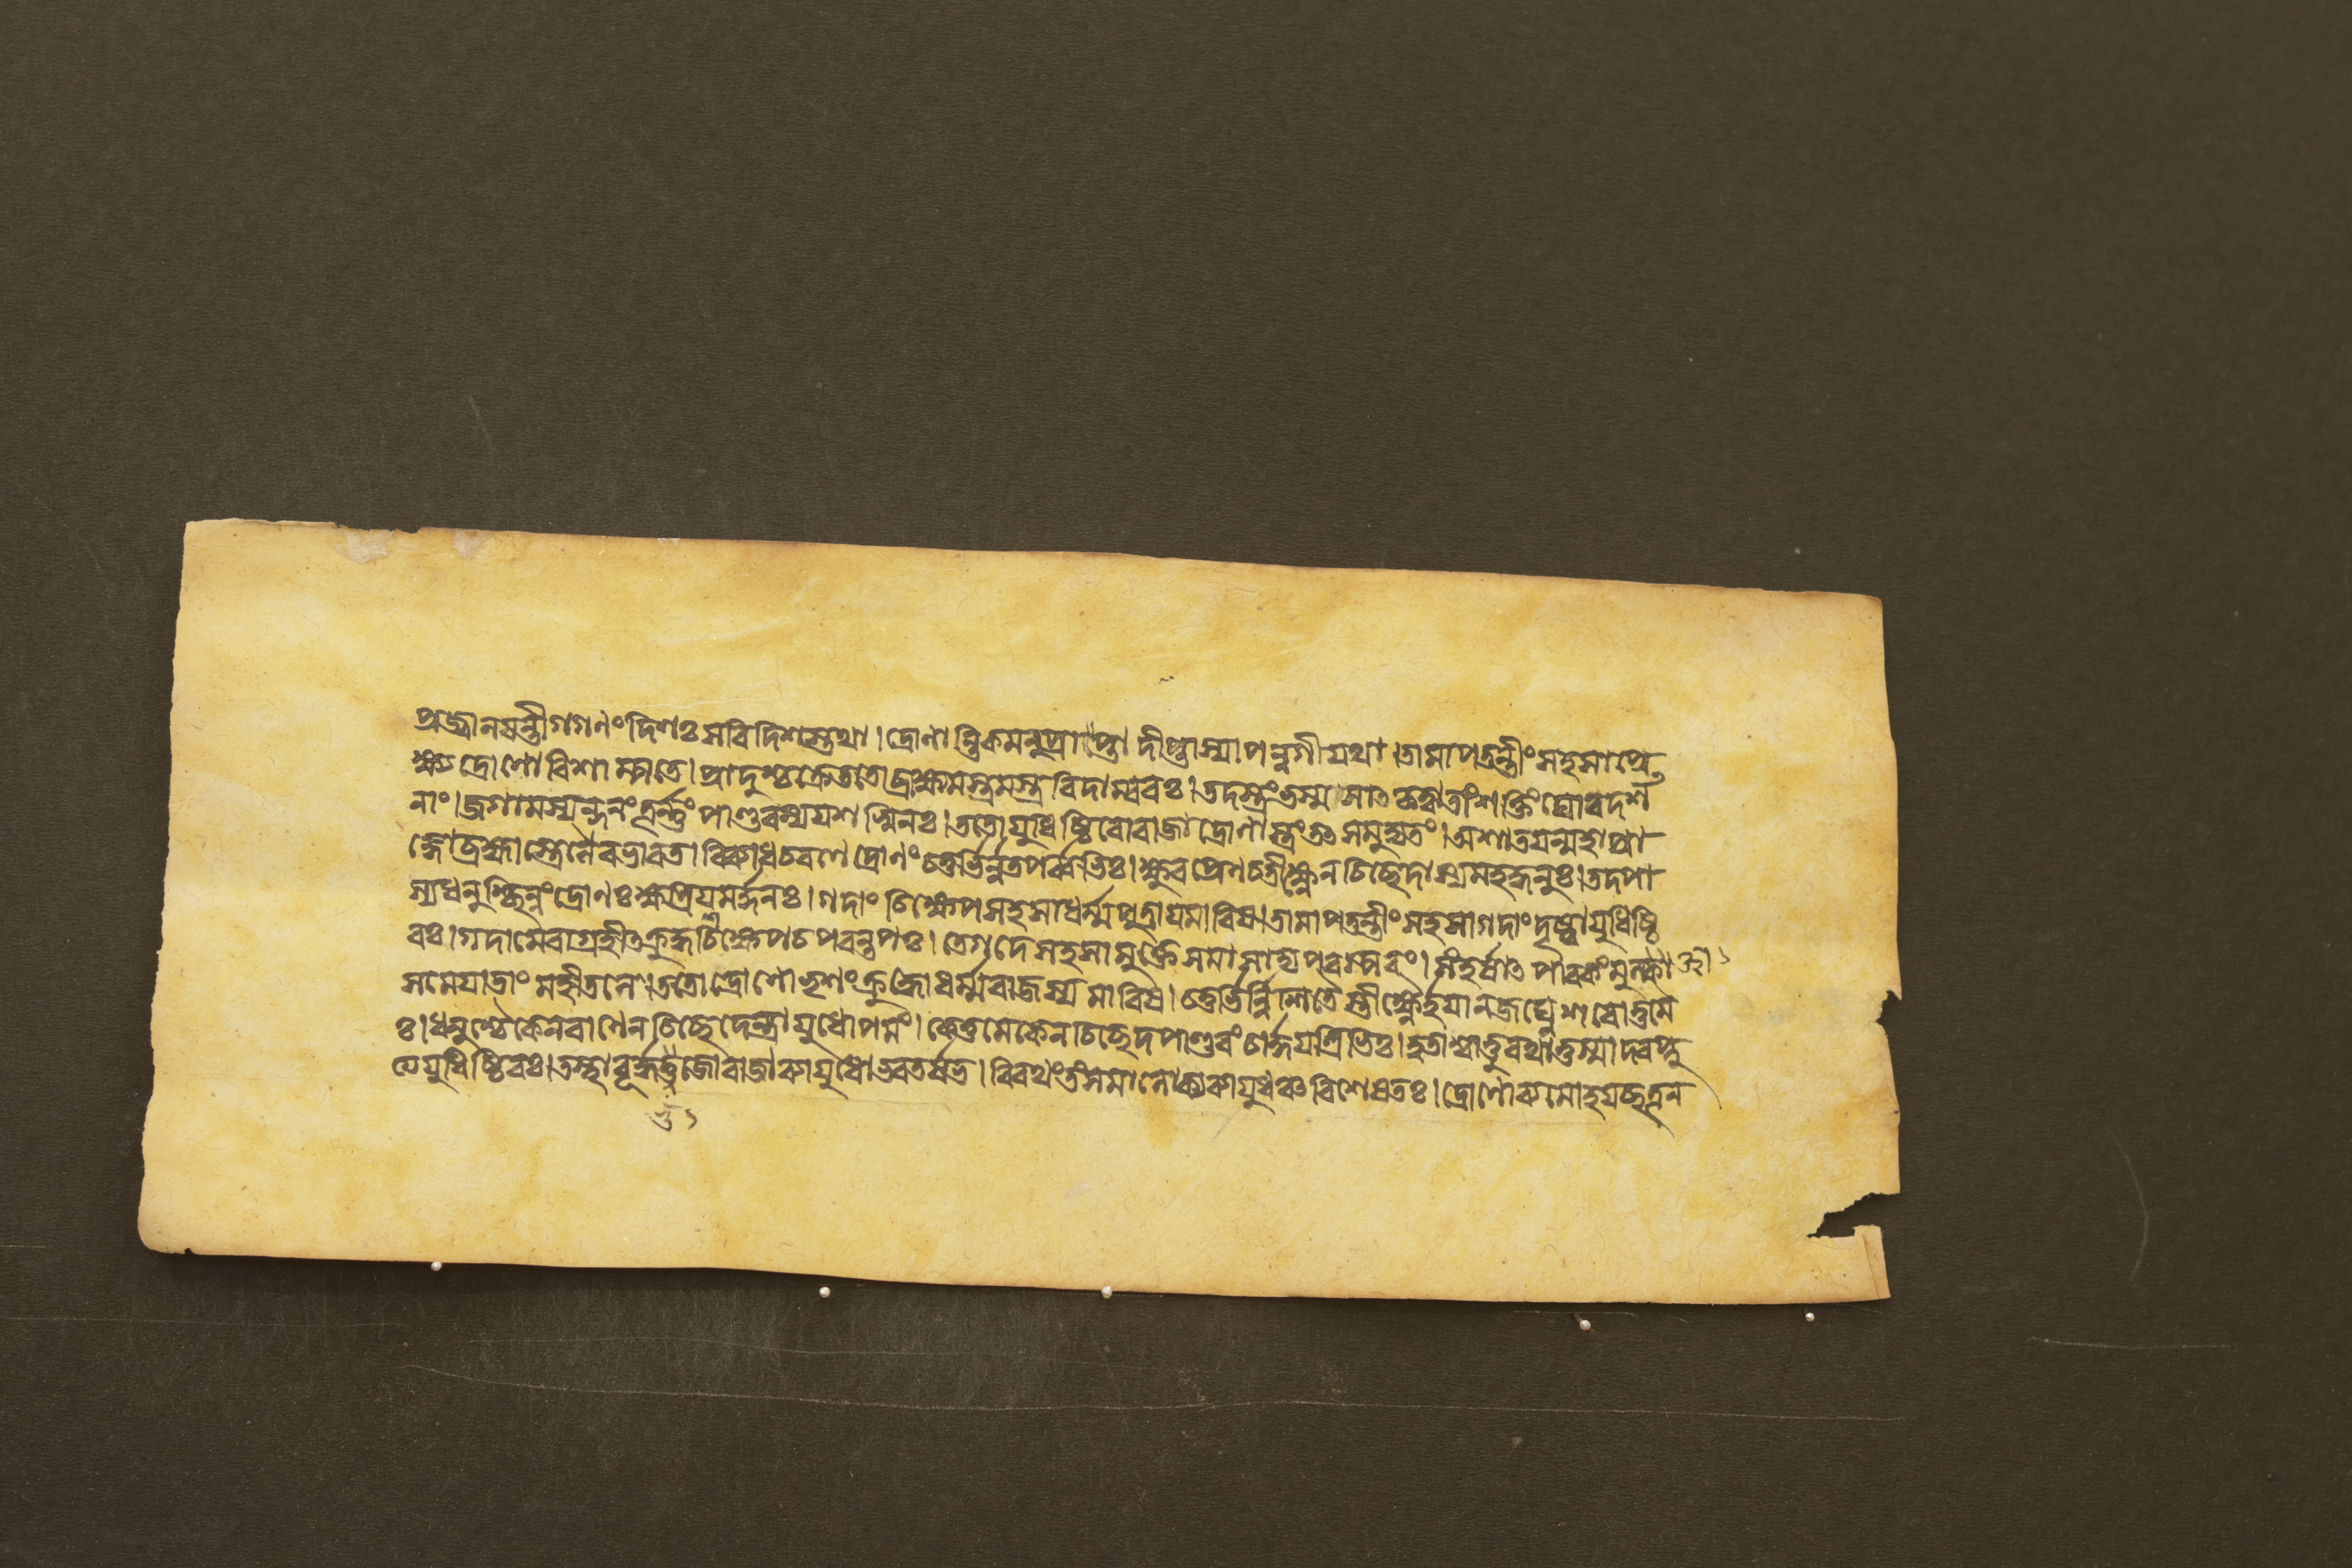 প্রজ্বালয়ন্তী গগণং দিশঃ সবিদিশস্তথা। দ্রোণান্তিকমনুপ্রাপ্তা দীপ্তাস্যা পন্নগী যথা। তামাপতন্তীং সহসা প্রে
ক্ষ্য দ্রোণো বিশাম্পতে। প্রাদুশ্চক্রে ততো ব্রাহ্মমস্ত্রমস্ত্রবিদাম্বরঃ। তদস্ত্রং ভস্মসাৎ কৃত্বা তাং শক্তিং ঘোরদর্শ
নাং। জগাম স্যন্দনং তূর্ণ্ণং পাণ্ডবস্য যশস্বিনঃ। ততো যুধিষ্ঠিরো রাজা দ্রোণাস্ত্রং তৎ সমুদ্যতং। অশাতয়ন্মহাপ্রা
জ্ঞো ব্রহ্মাস্ত্রেনৈব ভারত। বিব্যাধ চ রণে দ্রোণং চতুর্ভির্ন্নতপর্ব্বভিঃ। ক্ষুরপ্রেণ চ তীক্ষ্ণেন চিচ্ছেদাস্য মহদ্ধনুঃ। তদপা
স্য ধনুশ্ছিন্নং দ্রোণঃ ক্ষত্রিয়মর্দ্দনঃ। গদাং চিক্ষেপ সহসা ধর্ম্মপুত্রায় মারিষ। তামাপতন্তীং সহসা গদাং দৃষ্ট্বা যুধিষ্ঠি
রঃ। গদামেবাগ্রহীৎ ক্রুদ্ধশ্চিক্ষেপ চ পরন্তপঃ। তে গদে সহসা মুক্তে সমাসাদ্য পরস্পরং। সংঘর্ষাৎ পাবকং মুক্ত্বা
সমেয়াতাং মহীতলে। ততো দ্রোণো ভৃশং ক্রুদ্ধো ধর্ম্মরাজস্য মারিষ। চতুর্ভির্ন্নিশিতৈস্তীক্ষ্ণৈর্হয়ান জঘ্নে শরোত্তমৈ
ঃ। ধনুশ্চৈকেন বাণেন চিচ্ছেদেন্দ্রায়ুধোপমং। কেতুমেকেন চিচ্ছেদ পাণ্ডবং চার্দ্দয়ত্রিভিঃ। হতাশ্বাত্তু রথাত্তস্মাদবপ্লু
ত্য যুধিষ্ঠিরঃ। তস্থাবূর্দ্ধভুজো রাজা ব্যায়ুধো ভরতর্ষভ। বিরথং তং সমালোক্য ব্যায়ুধঞ্চ বিশেষতঃ। দ্রোণো ব্যমোহয়চ্ছত্রূন